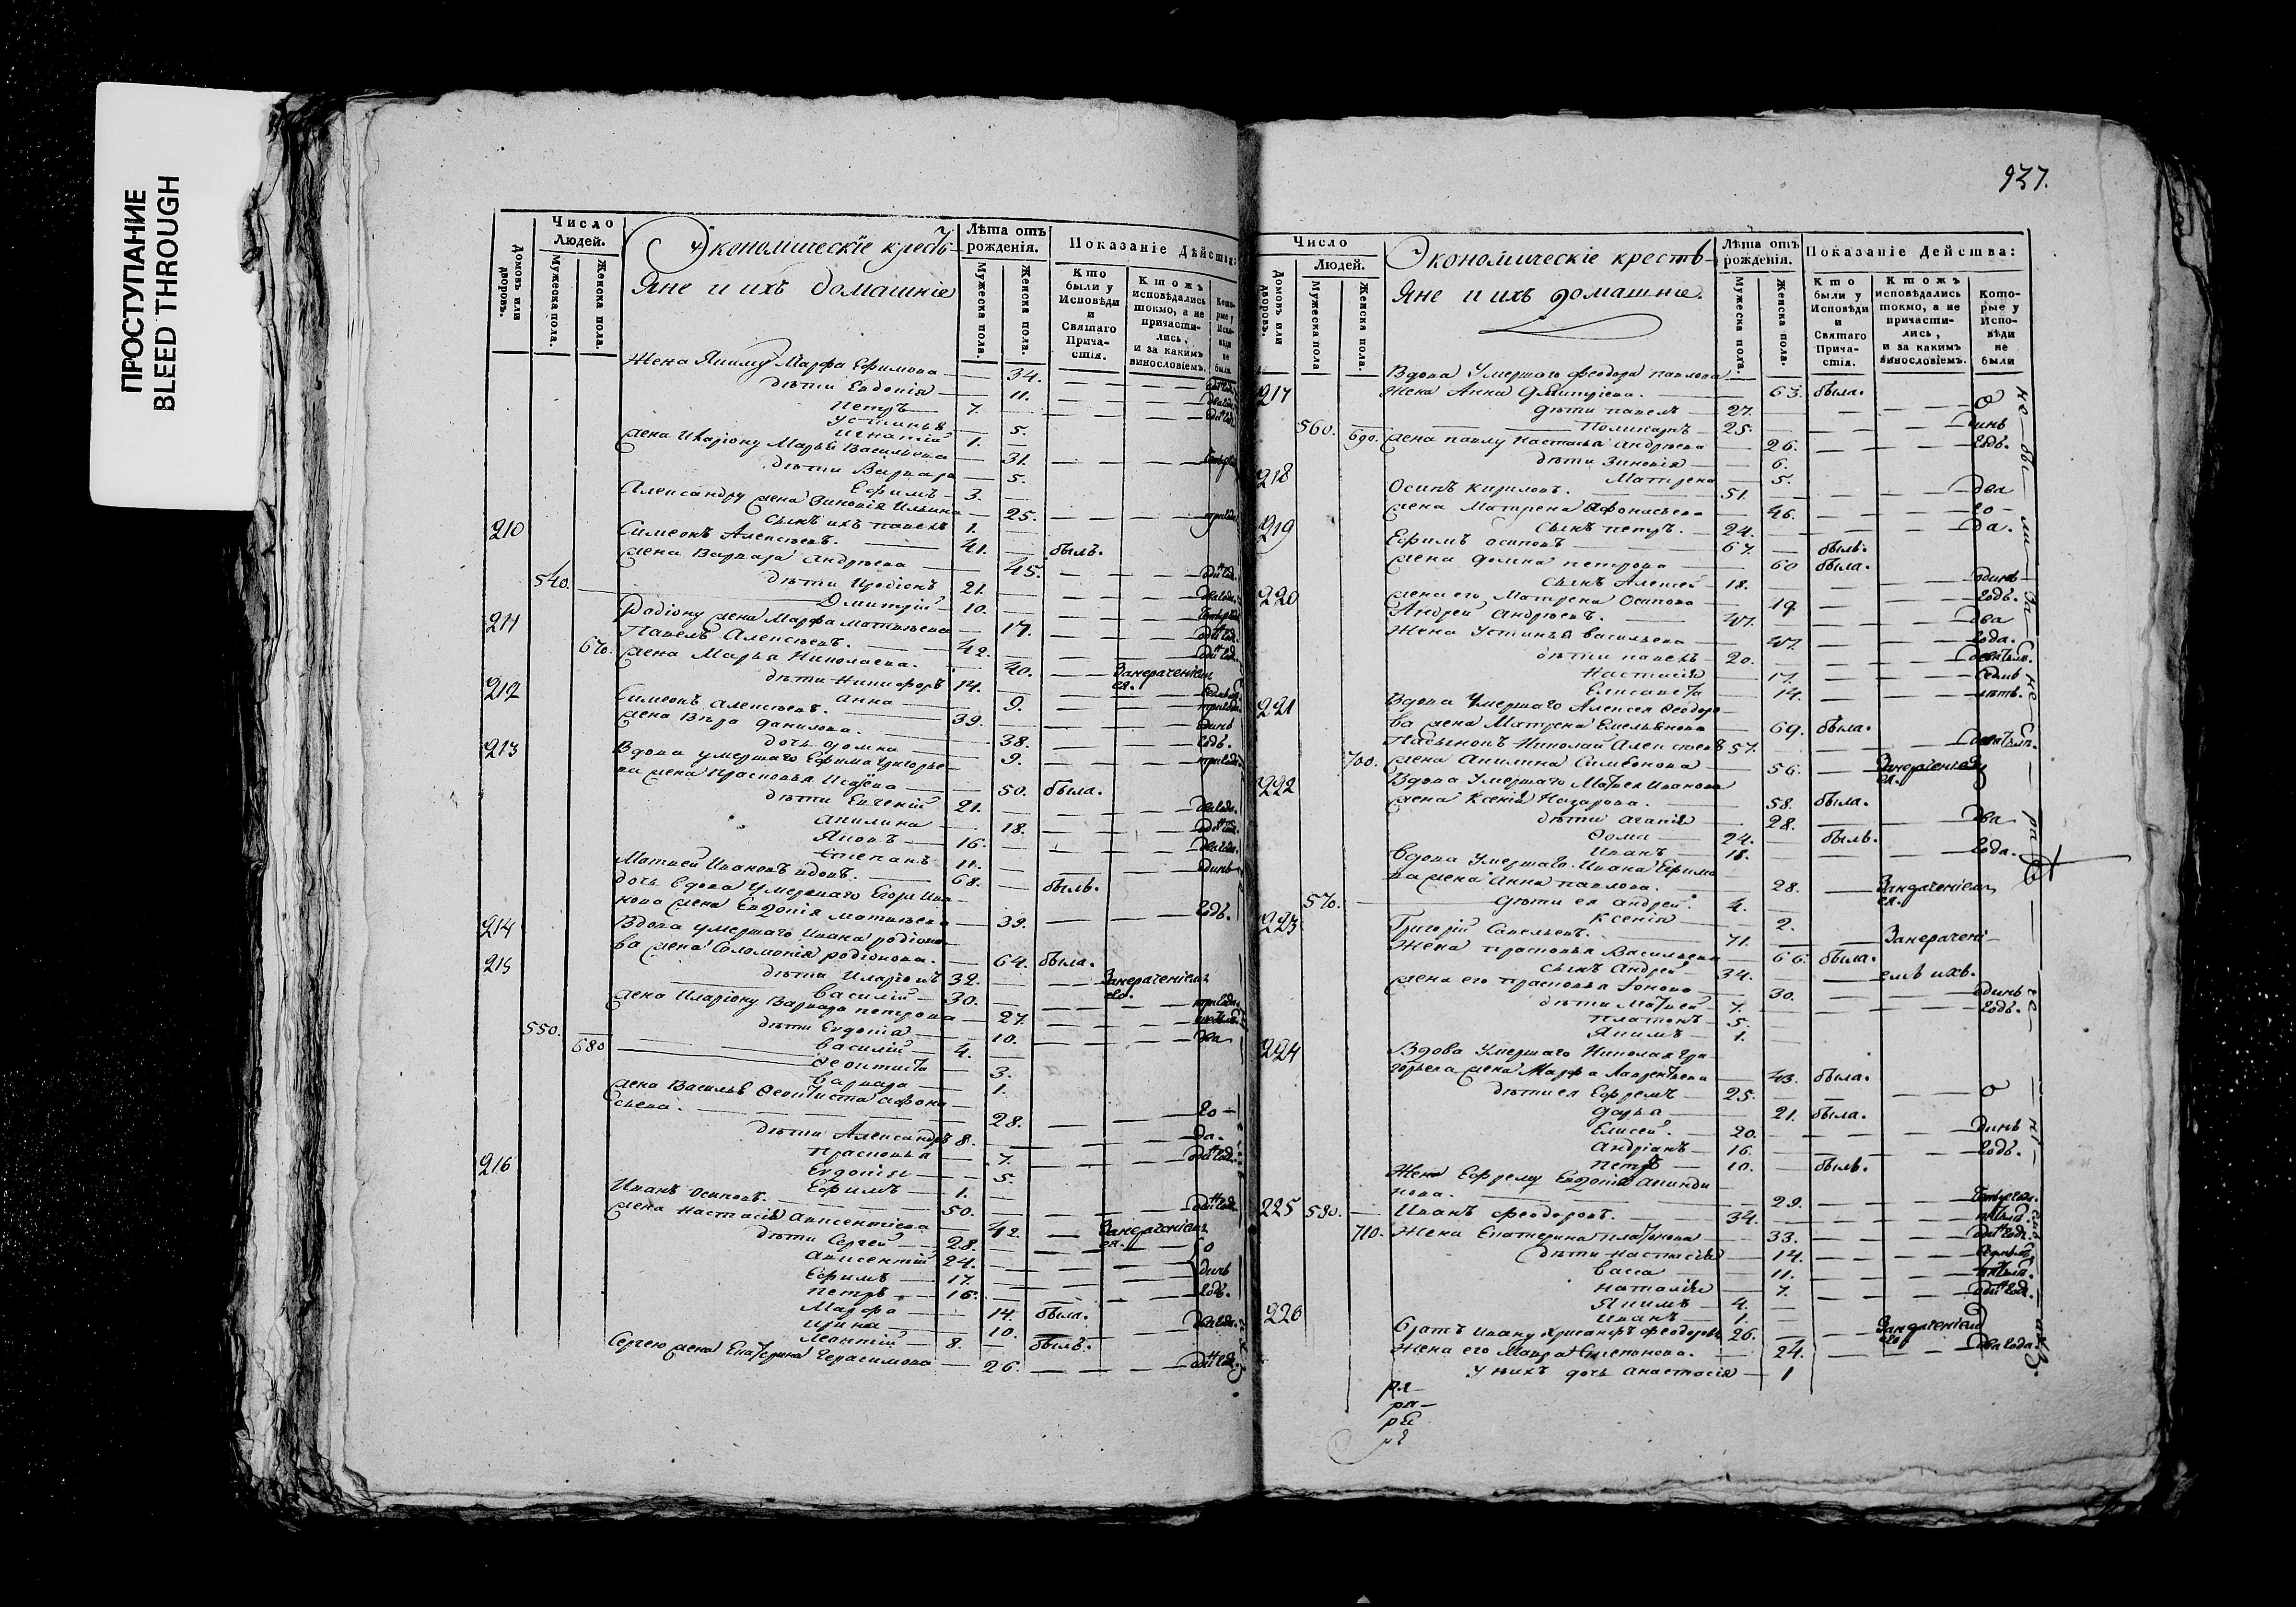 ПРОСТУПАНИЕ
BLEED THROUGH
Число Людей.
Домовъ или дворовъ.
Мужеска пола.
Женска пола.
Экономическіе кресть-
яне и ихъ домашніе
Лѣта отъ рожденія.
Мужеска пола.
Женска пола.
Показаніе Дѣйства:
Кто были у Исповѣди и Святаго Причастія.
Кто жъ исповѣдались токмо, а не причастились, и за какимъ винословіемъ.
Которые у Исповѣди не были
Жена Якиму Марфа Ефимова — 34.
дѣти Евдокія — 11.
Петръ — 7.
Устинья — 5.
Игнатій 1.
жена Иларіону Марья Васильева — 31.
дѣти Варвара — 5.
Ефимъ — 3.
Александру жена Зиновія Ильина — 25.
сынъ ихъ Павелъ 1.
210 Симеонъ Алексѣевъ. 41. былъ.
жена Варвара Андреева 45.
540. дѣти Иродіонъ 21.
Дмитрій 10.
Родіону жена Марфа Матвѣева 17.
211 Павелъ Алексѣевъ. 42.
670. жена Марья Николаева. 40. Занераченіемъ ея.
дѣти Никифоръ 14.
Анна 9.
212 Симеонъ Алексѣевъ. 39. одинъ
жена Вѣра Данилова. 38. годъ.
дочь Домна 9.
213 Вдова умершаго Ефима Григорье-
ва жена Прасковья Исаева 50. была.
дѣти Евгеній 21.
Акилина 18.
Яковъ 16.
Степанъ 11.
Матвей Ивановъ вдовъ. 68. былъ.
дочь вдова умершаго Егора Ива-
нова жена Евдокія Матвѣева 39. годъ.
214 Вдова умершаго Ивана Родіоно-
ва жена Соломонія Родіонова. 64. была.
215 дѣти Иларіонъ 32. Занераченіемъ его.
Василій 30.
жена Иларіону Варвара Петрова 27.
дѣти Евдокія 10. два
550. Василій 4.
680 Феоктиста 3.
Варвара 1.
жена Василью Феоктиста Афона-
сьева. 28. го-
дѣти Александръ 8. да.
Прасковья 7.
Евдокія 5.
Ефимъ 1.
216 Иванъ Осиповъ. 50.
жена Настасія Авксентіева 42. Занераченіемъ ея.
дѣти Сергей 28. о
Авксентій 24. динъ
Ефимъ 17. годъ.
Петръ 16.
Марфа 14. была.
Ирина 10.
Леонтій 8. былъ.
Сергею жена Екатерина Герасимова 26.
937.
Число Людей.
Домовъ или дворовъ.
Мужеска пола
Женска пола.
Экономическіе кресть-
яне и ихъ домашніе.
Лѣта отъ рожденія.
Мужеска пола.
Женска пола.
Показаніе Дѣйства:
Кто были у Исповѣди и Святаго Причастія.
Кто жъ исповѣдались токмо, а не причастились, и за какимъ винословіемъ.
Которые у Исповѣди не были
Вдова умершаго Феодора Павлова
217 жена Анна Дмитріева. 63. была.
дѣти Павелъ 27. о
560. Поликарпъ 25. динъ
690. жена Павлу Настасья Андреева 26. годъ.
дѣти Зиновія 6.
Матрена 5.
218 Осипъ Кириловъ. 51. два
жена Матрена Афонасьева 46. го-
сынъ Петръ. 24. да.
219 Ефимъ Осиповъ 67. былъ.
жена Домна Петрова 60 была.
сынъ Алексей 18. одинъ
жена его Матрена Осипова 19. годъ.
220 Андрей Андреевъ. 47. два
Жена Устинья Васильева 47. года.
дѣти Павелъ 20.
Настасія 17. семь
Елисавета 14. лѣтъ.
221 Вдова умершаго Алексея Феодоро-
ва жена Матрена Емельянова 69. была.
Пасынокъ Николай Алексѣевъ 57.
700. жена Акилина Симеонова 56. Занераченіемъ ея.
222 Вдова умершаго Матвея Иванова
жена Ксенія Назарова. 58. была.
дѣти Агапія 28. два
Фома 24. былъ.
Иванъ 18. года.
Вдова умершаго Ивана Ефимо-
ва жена Анна Павлова. 28. Занераченіемъ ея.
570. дѣти ея Андрей. 4.
Ксенія 2.
223 Григорій Савельевъ. 71. Занерачені-
Жена Прасковья Васильева 66. была.
сынъ Андрей 34. емъ ихъ.
жена его Прасковья 30. одинъ
дѣти Матвей 7. годъ.
Платонъ 5.
Якимъ 1.
224 Вдова умершаго Николая Гри-
горьева жена Марфа Лаврентьева 43. была.
дѣти ея Ефремъ 25. о
Дарья 21. была.
Елисей 20. динъ
Андріанъ 16. годъ.
Петръ 10. былъ.
Жена Ефрему Евдокія Акинди-
нова. 29.
225 580. Иванъ Феодоровъ. 34.
710. Жена Екатерина Платонова 33.
дѣти Настасія 14.
Васса 11.
Наталія 7.
Якимъ 4.
Иванъ 1.
226 Братъ Ивану Хрисанфъ Феодоровъ 26. Занераченіемъ его
Жена его Мавра Степанова. 24. два года.
у нихъ дочь Анастасія 1